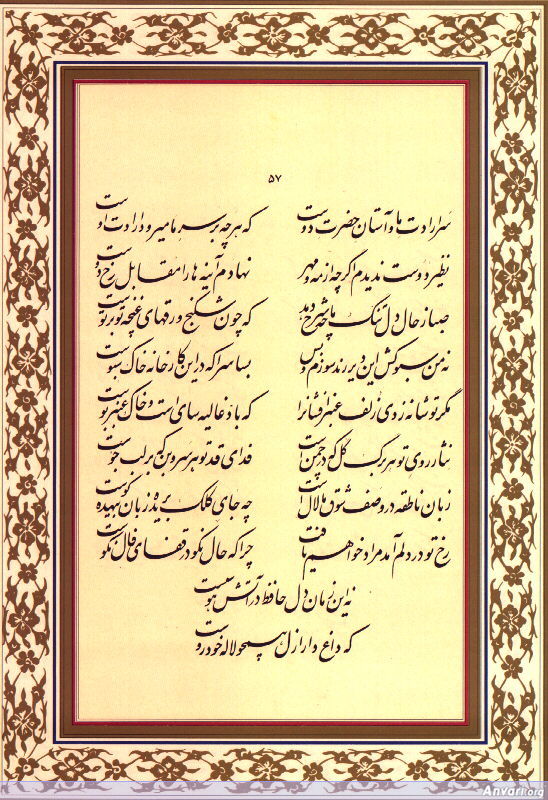 ۵۷
سر ارادت ما و آستان حضرت دوست که هر چه بر سر ما میرود ارادت اوست
نظیر دوست ندیدم اگر چه از مه و مهر نهادم آینه ها را مقابل رخ دوست
صبا ز حال دل تنگ ما چه شرح دهد که چون شکنج ورقهای غنچه تو بر توست
نه من سبوکش این دیر رندسوزم و بس بسا سرا که در این کارخانه خاک سبوست
مگر تو شانه زدی زلف عنبرافشانرا که باد غالیه سای است و خاک عنبر بوست
نثار روی تو هر برگ گل که در چمن است فدای قد تو هر سروبن که بر لب جوست
زبان ناطقه در وصف شوق ما لال است چه جای کلک بریده زبان بیهده گوست
رخ تو در دلم آمد مراد خواهم یافت چرا که حال نکو در قفای فال نکوست
نه این زمان دل حافظ در آتش هوس است
که داغدار ازل همچو لاله خودروست
Anvari.org